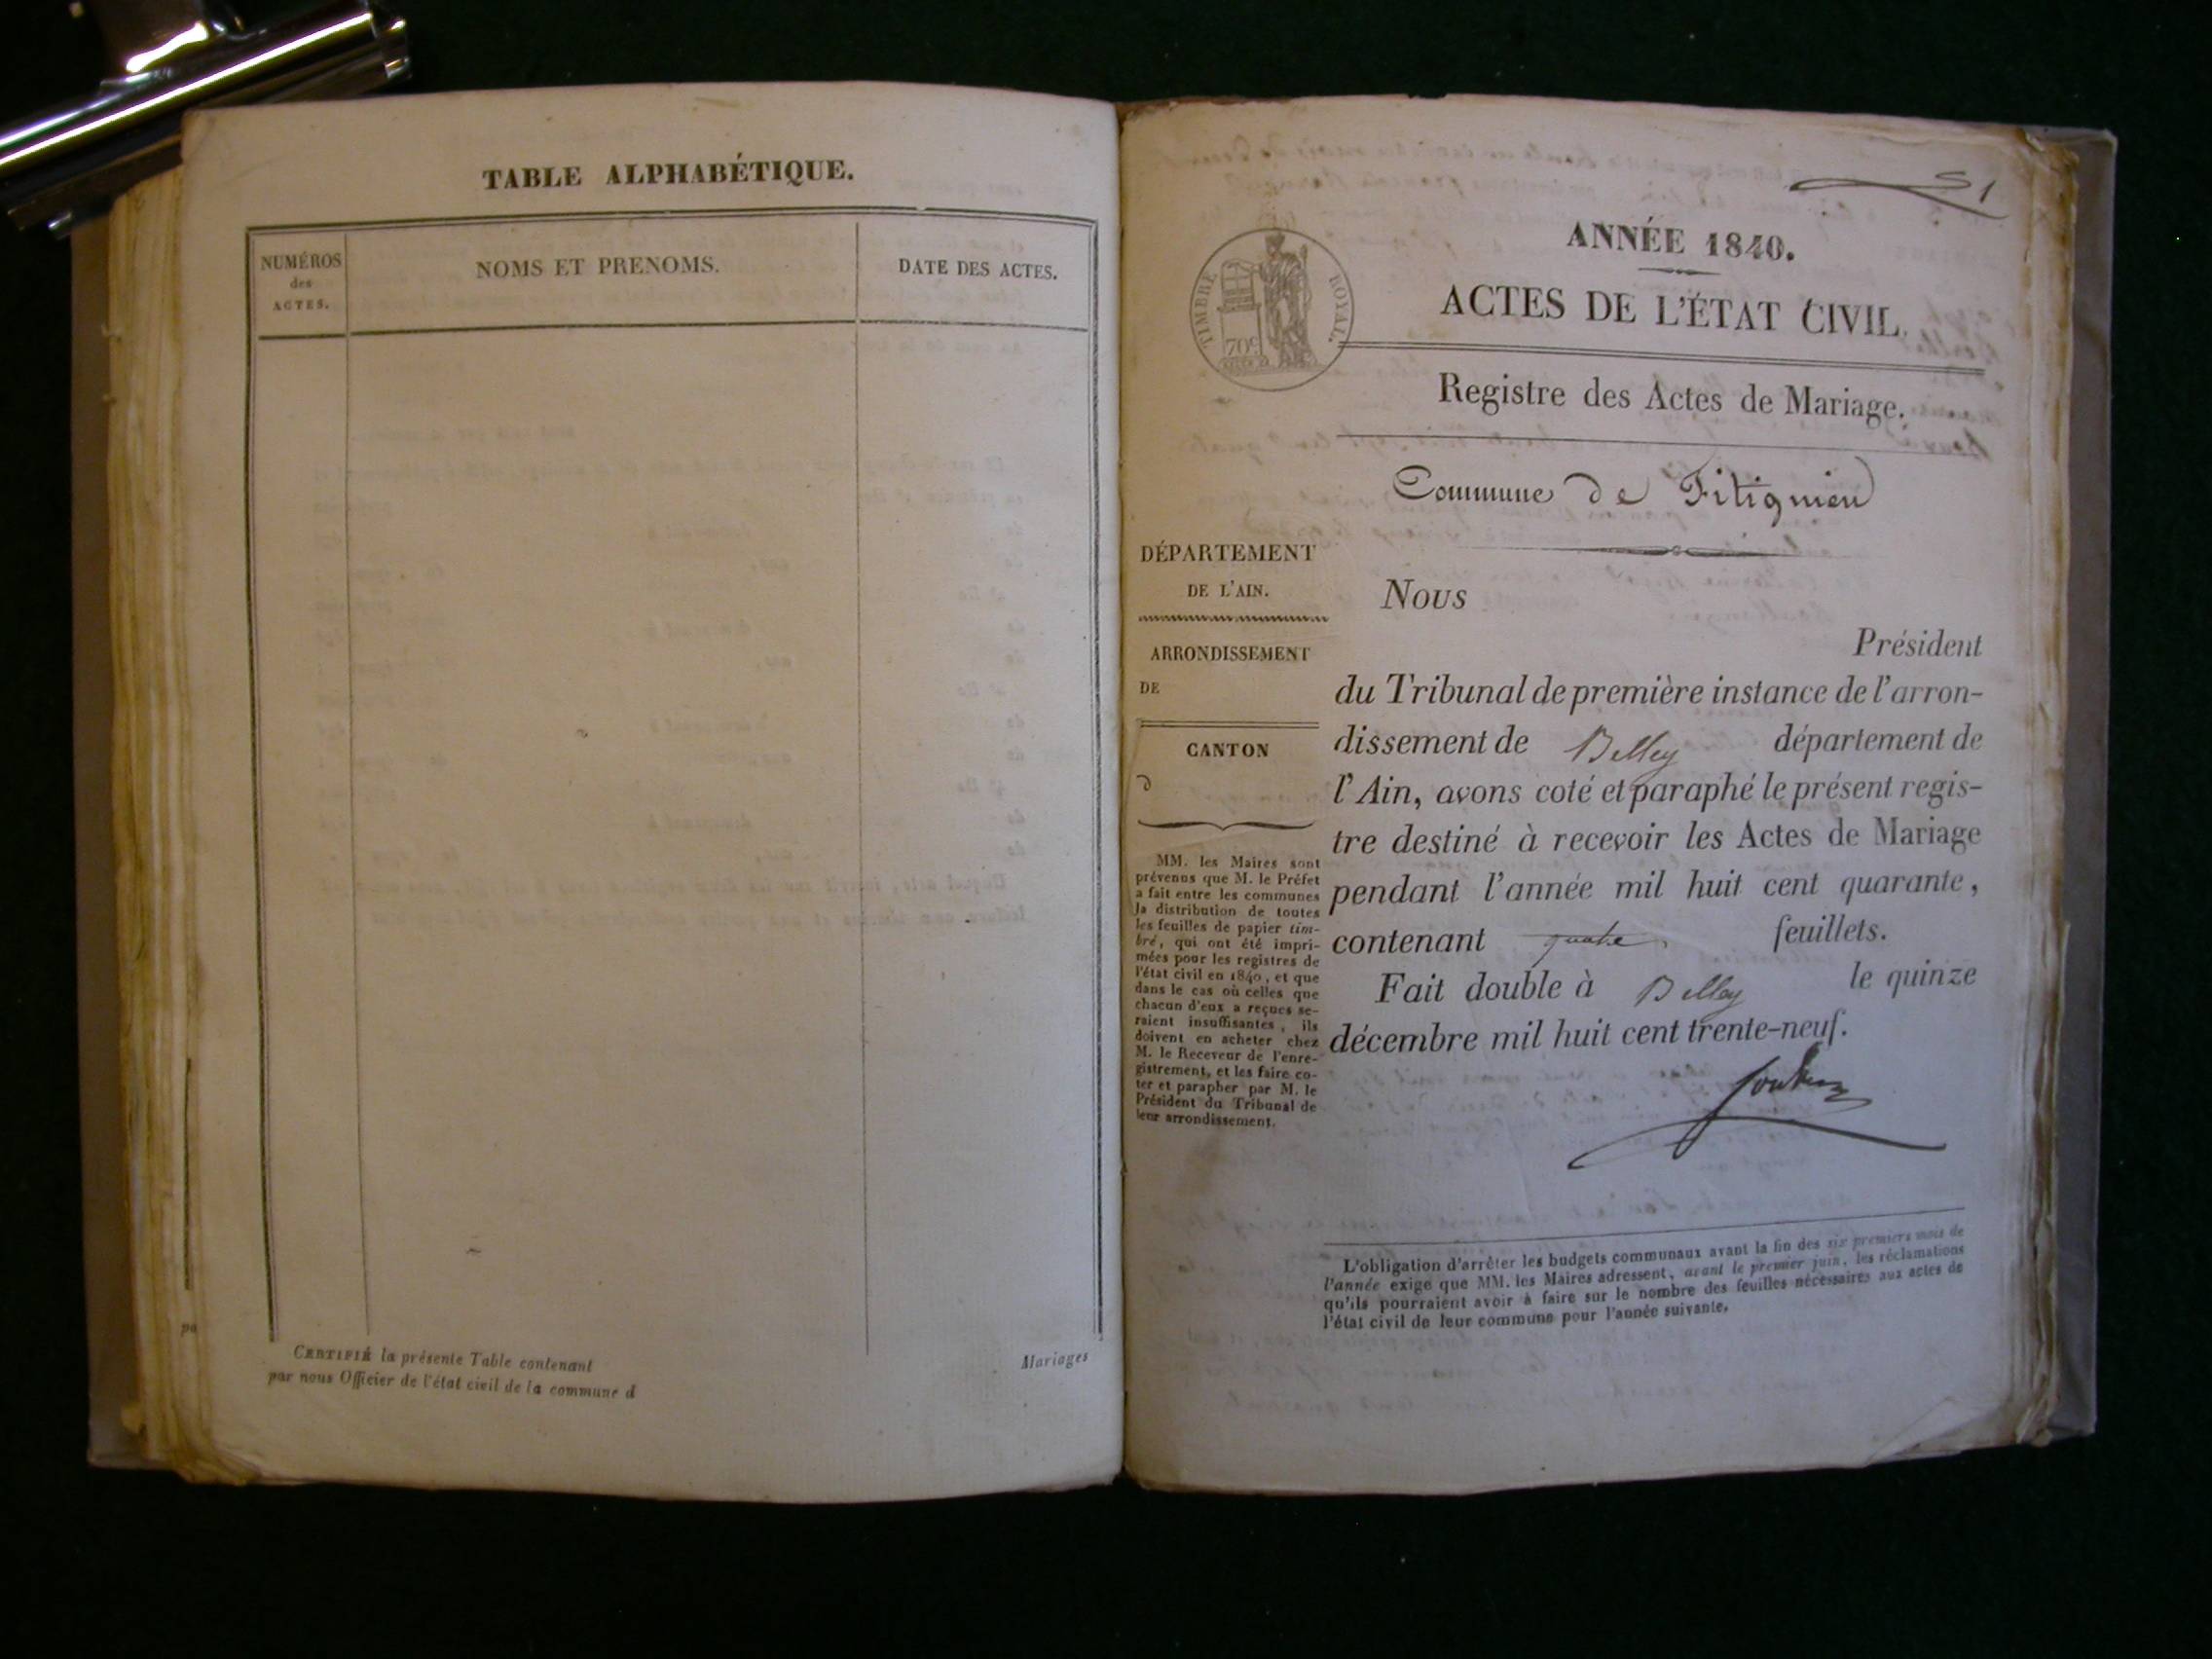 TABLE ALPHABÉTIQUE.
NUMÉROS
des
ACTES.
NOMS ET PRENOMS.
DATE DES ACTES.
CERTIFIÉ la présente Table contenant
par nous Officier de l'état civil de la commune d
Mariages
1
ANNÉE 1840.
TIMBRE ROYAL.
70c
ACTES DE L'ÉTAT CIVIL.
Registre des Actes de Mariage.
Commune de Fitignieu
DÉPARTEMENT
DE L'AIN.
ARRONDISSEMENT
DE
CANTON
d
MM. les Maires sont
prévenus que M. le Préfet
a fait entre les communes
la distribution de toutes
les feuilles de papier tim-
bré, qui ont été impri-
mées pour les registres de
l'état civil en 1840, et que
dans le cas où celles que
chacun d'eux a reçues se-
raient insuffisantes, ils
doivent en acheter chez
M. le Receveur de l'enre-
gistrement, et les faire co-
ter et parapher par M. le
Président du Tribunal de
leur arrondissement.
Nous
Président
du Tribunal de première instance de l'arron-
dissement de Belley département de
l'Ain, avons coté et paraphé le présent regis-
tre destiné à recevoir les Actes de Mariage
pendant l'année mil huit cent quarante,
contenant quatre feuillets.
Fait double à Belley le quinze
décembre mil huit cent trente-neuf.
L'obligation d'arrêter les budgets communaux avant la fin des six premiers mois de
l'année exige que MM. les Maires adressent, avant le premier juin, les réclamations
qu'ils pourraient avoir à faire sur le nombre des feuilles nécessaires aux actes de
l'état civil de leur commune pour l'année suivante.